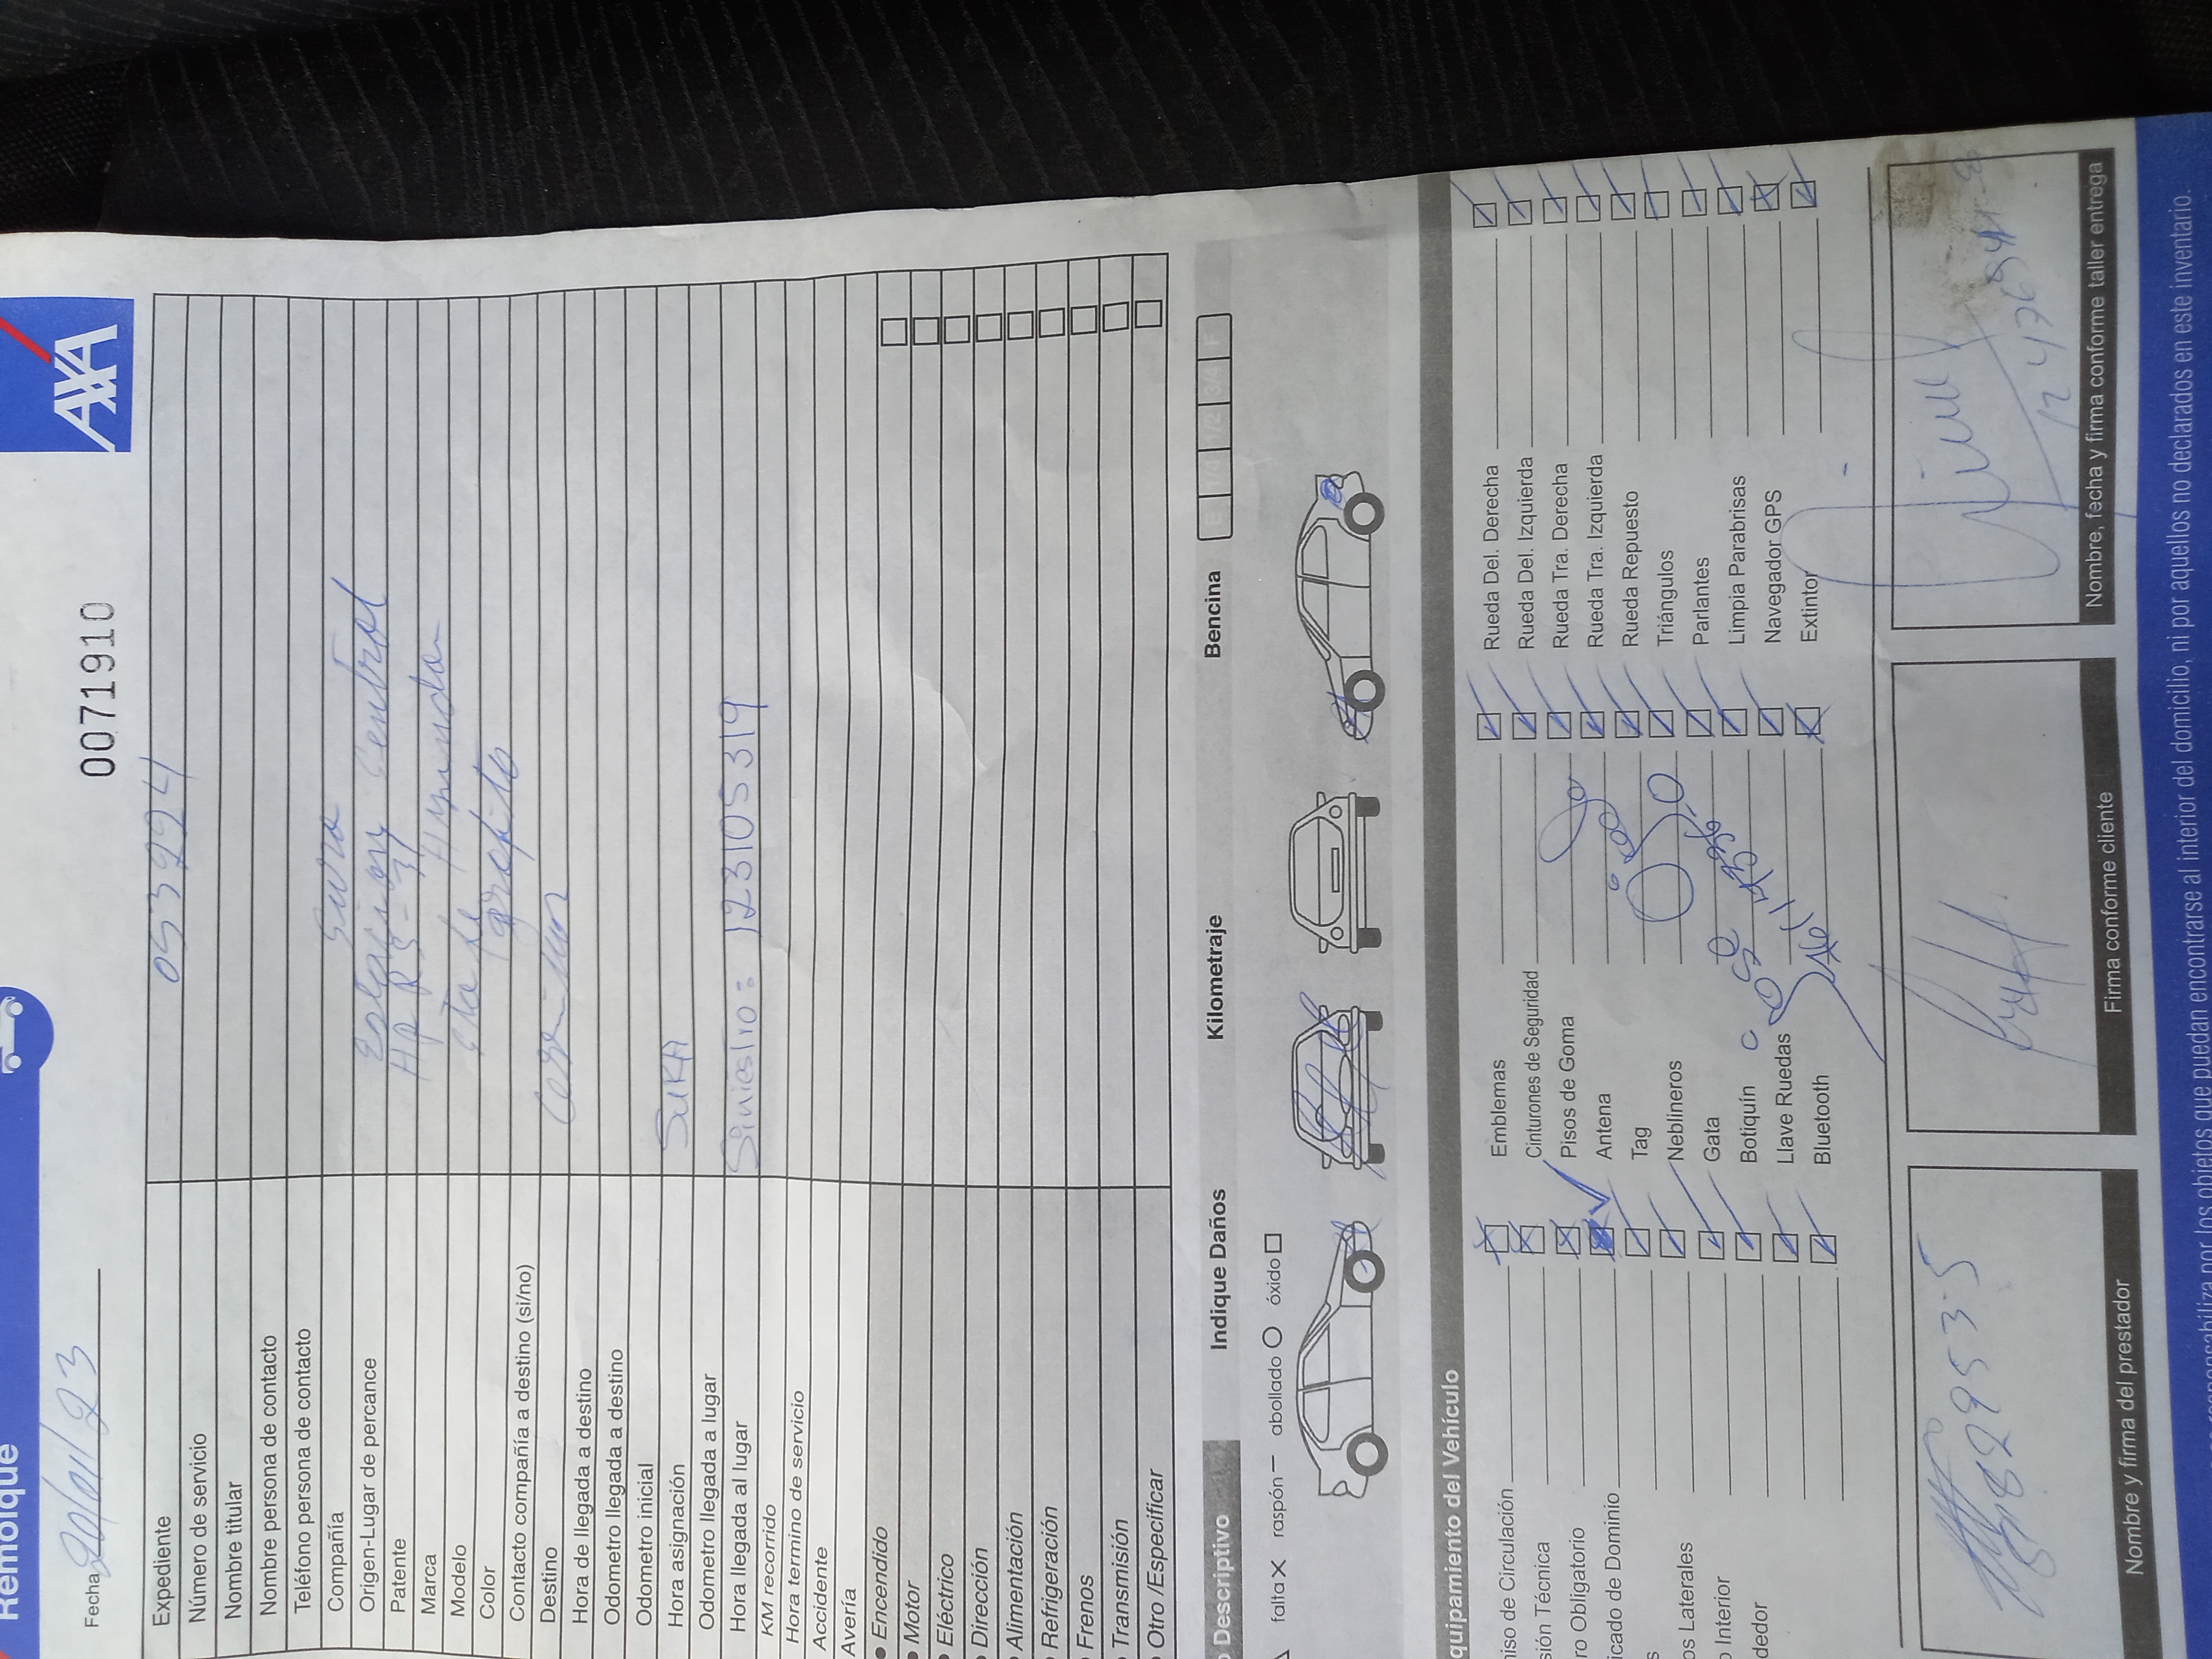 Remolque
AXA
Fecha 20/01/23
0071910
Expediente 053994
Número de servicio
Nombre titular
Nombre persona de contacto
Teléfono persona de contacto
Compañía Sura
Origen-Lugar de percance Central
Patente
Marca Hyundai
Modelo
Color grafito
Contacto compañía a destino (si/no)
Destino
Hora de llegada a destino
Odometro llegada a destino
Odometro inicial
Hora asignación
Odometro llegada a lugar
Hora llegada al lugar Siniestro = 123105319
KM recorrido
Hora termino de servicio
Accidente
Avería
• Encendido
• Motor
• Eléctrico
• Dirección
• Alimentación
• Refrigeración
• Frenos
• Transmisión
• Otro /Especificar
Descriptivo Indique Daños Kilometraje Bencina
E 1/4 1/2 3/4 F
falta X raspón — abollado O óxido □
quipamiento del Vehículo
iso de Circulación
sión Técnica
ro Obligatorio
icado de Dominio
os Laterales
Interior
dedor
Emblemas
Cinturones de Seguridad
Pisos de Goma
Antena
Tag
Neblineros
Gata
Botiquín
Llave Ruedas
Bluetooth
Rueda Del. Derecha
Rueda Del. Izquierda
Rueda Tra. Derecha
Rueda Tra. Izquierda
Rueda Repuesto
Triángulos
Parlantes
Limpia Parabrisas
Navegador GPS
Extintor
Nombre y firma del prestador
Firma conforme cliente
Nombre, fecha y firma conforme taller entrega
responsabiliza por los objetos que puedan encontrarse al interior del domicilio, ni por aquellos no declarados en este inventario.